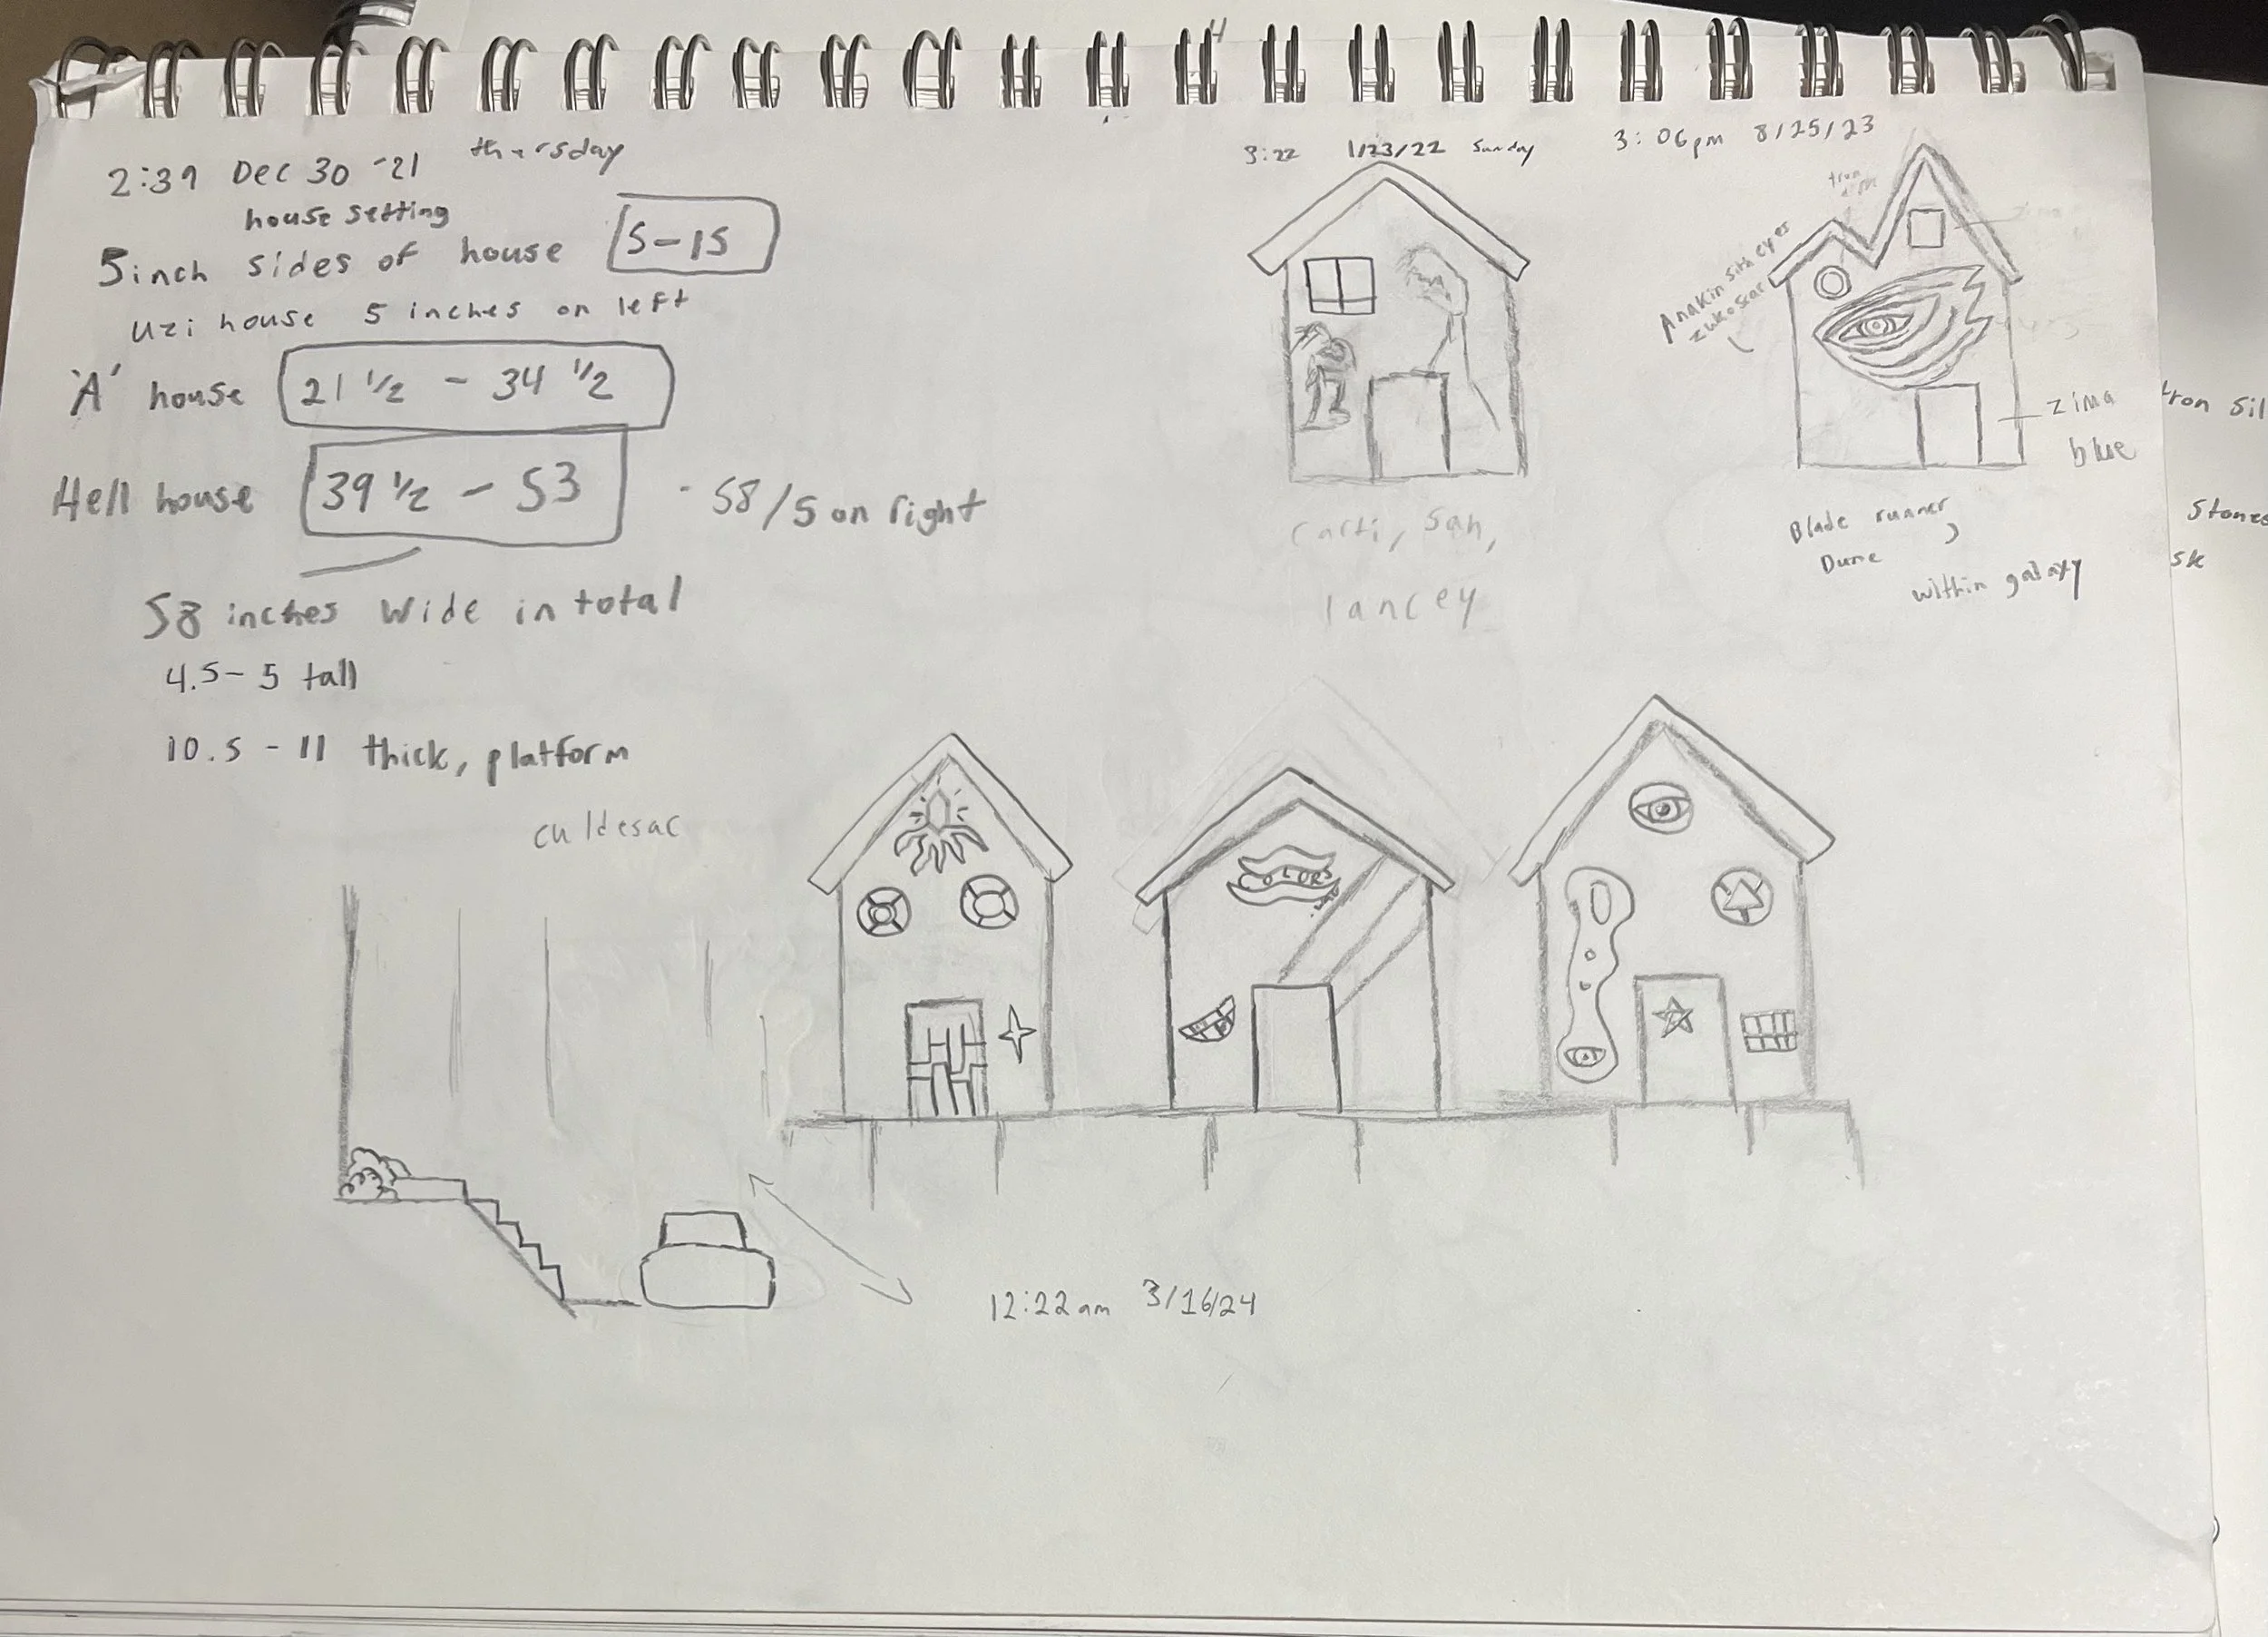 2:39 Dec 30 -21 thursday
house setting
5inch sides of house 5-15
uzi house 5 inches on left
'A' house 21 1/2 - 34 1/2
Hell house 39 1/2 - 53 - 58/5 on right
58 inches wide in total
4.5-5 tall
10.5 - 11 thick, platform
culdesac
3:22 1/23/22 Sunday
carti, sah,
lancey
3:06pm 8/25/23
tron
Anakin sith eyes
zuko scar
zima
blue
Blade runner,
Dune
within galaxy
tron sil
stones
sk
COLORS
12:22am 3/16/24